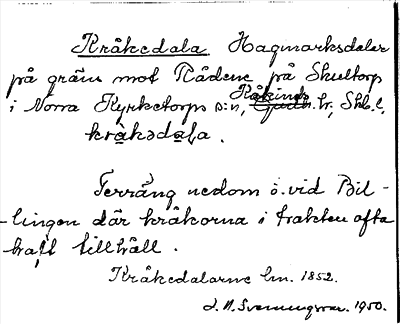 Kråkedala Hagmarksdalar
på gräns mot Rådene på Skultorp
i Norra Kyrketorps s:n, Kåkinds hr, Skb.l.
kråkədala.
Terräng nedom o. vid Bil-
-lingen där kråkorna i trakten ofta
haft tillhåll.
Kråkedalarne lm. 1852.
1950.